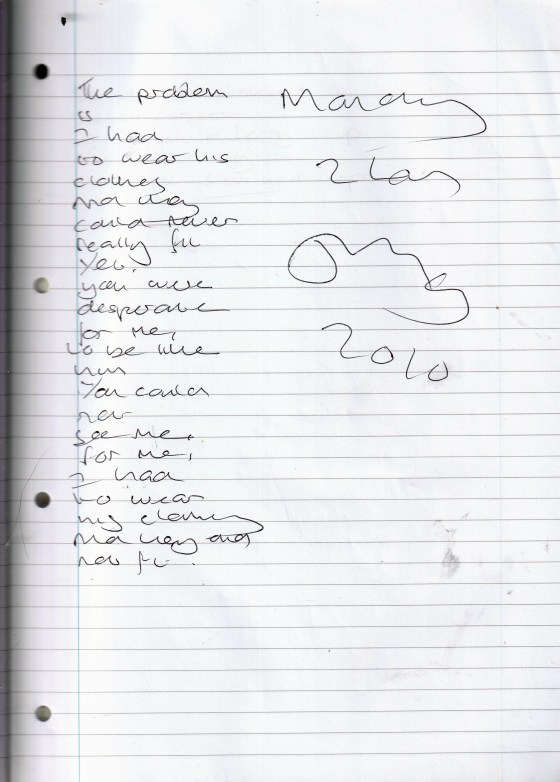 The problem
is
I had
to wear his
clothes
And they
could never
really fit
Yet,
you were
desperate
for me,
to be like
him
You could
not
see me,
for me,
I had
to wear
his clothes
And they did
not fit.
Monday
2010